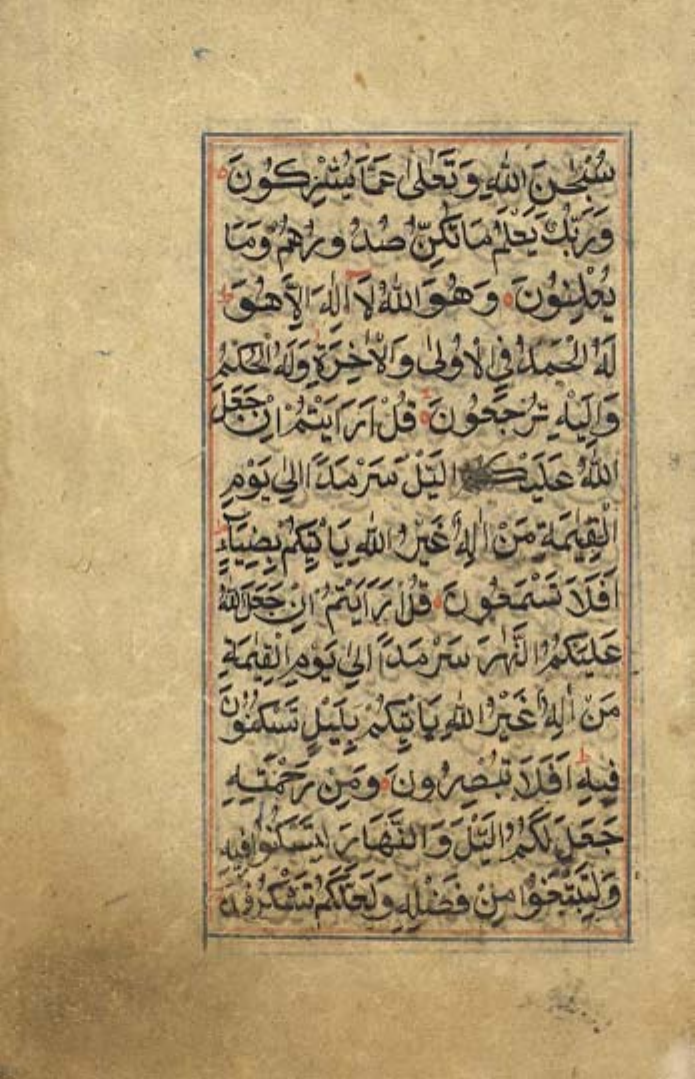 سُبْحٰنَ اللّٰهِ وَتَعٰلٰى عَمَّا يُشْرِكُونَ
وَرَبُّكَ يَعْلَمُ مَا تُكِنُّ صُدُورُهُمْ وَمَا
يُعْلِنُونَ وَهُوَ اللّٰهُ لَا اِلٰهَ اِلَّا هُوَ
لَهُ الْحَمْدُ فِي الْاُولٰى وَالْاٰخِرَةِ وَلَهُ الْحُكْمُ
وَاِلَيْهِ تُرْجَعُونَ قُلْ اَرَاَيْتُمْ اِنْ جَعَلَ
اللّٰهُ عَلَيْكُمُ الَّيْلَ سَرْمَدًا اِلٰى يَوْمِ
الْقِيٰمَةِ مَنْ اِلٰهٌ غَيْرُ اللّٰهِ يَاْتِيكُمْ بِضِيَآءٍ
اَفَلَا تَسْمَعُونَ قُلْ اَرَاَيْتُمْ اِنْ جَعَلَ اللّٰهُ
عَلَيْكُمُ النَّهٰرَ سَرْمَدًا اِلٰى يَوْمِ الْقِيٰمَةِ
مَنْ اِلٰهٌ غَيْرُ اللّٰهِ يَاْتِيكُمْ بِلَيْلٍ تَسْكُنُوْنَ
فِيْهِ اَفَلَا تُبْصِرُونَ وَمِنْ رَحْمَتِهِ
جَعَلَ لَكُمُ الَّيْلَ وَالنَّهَارَ لِتَسْكُنُوا فِيهِ
وَلِتَبْتَغُوا مِنْ فَضْلِهِ وَلَعَلَّكُمْ تَشْكُرُونَ